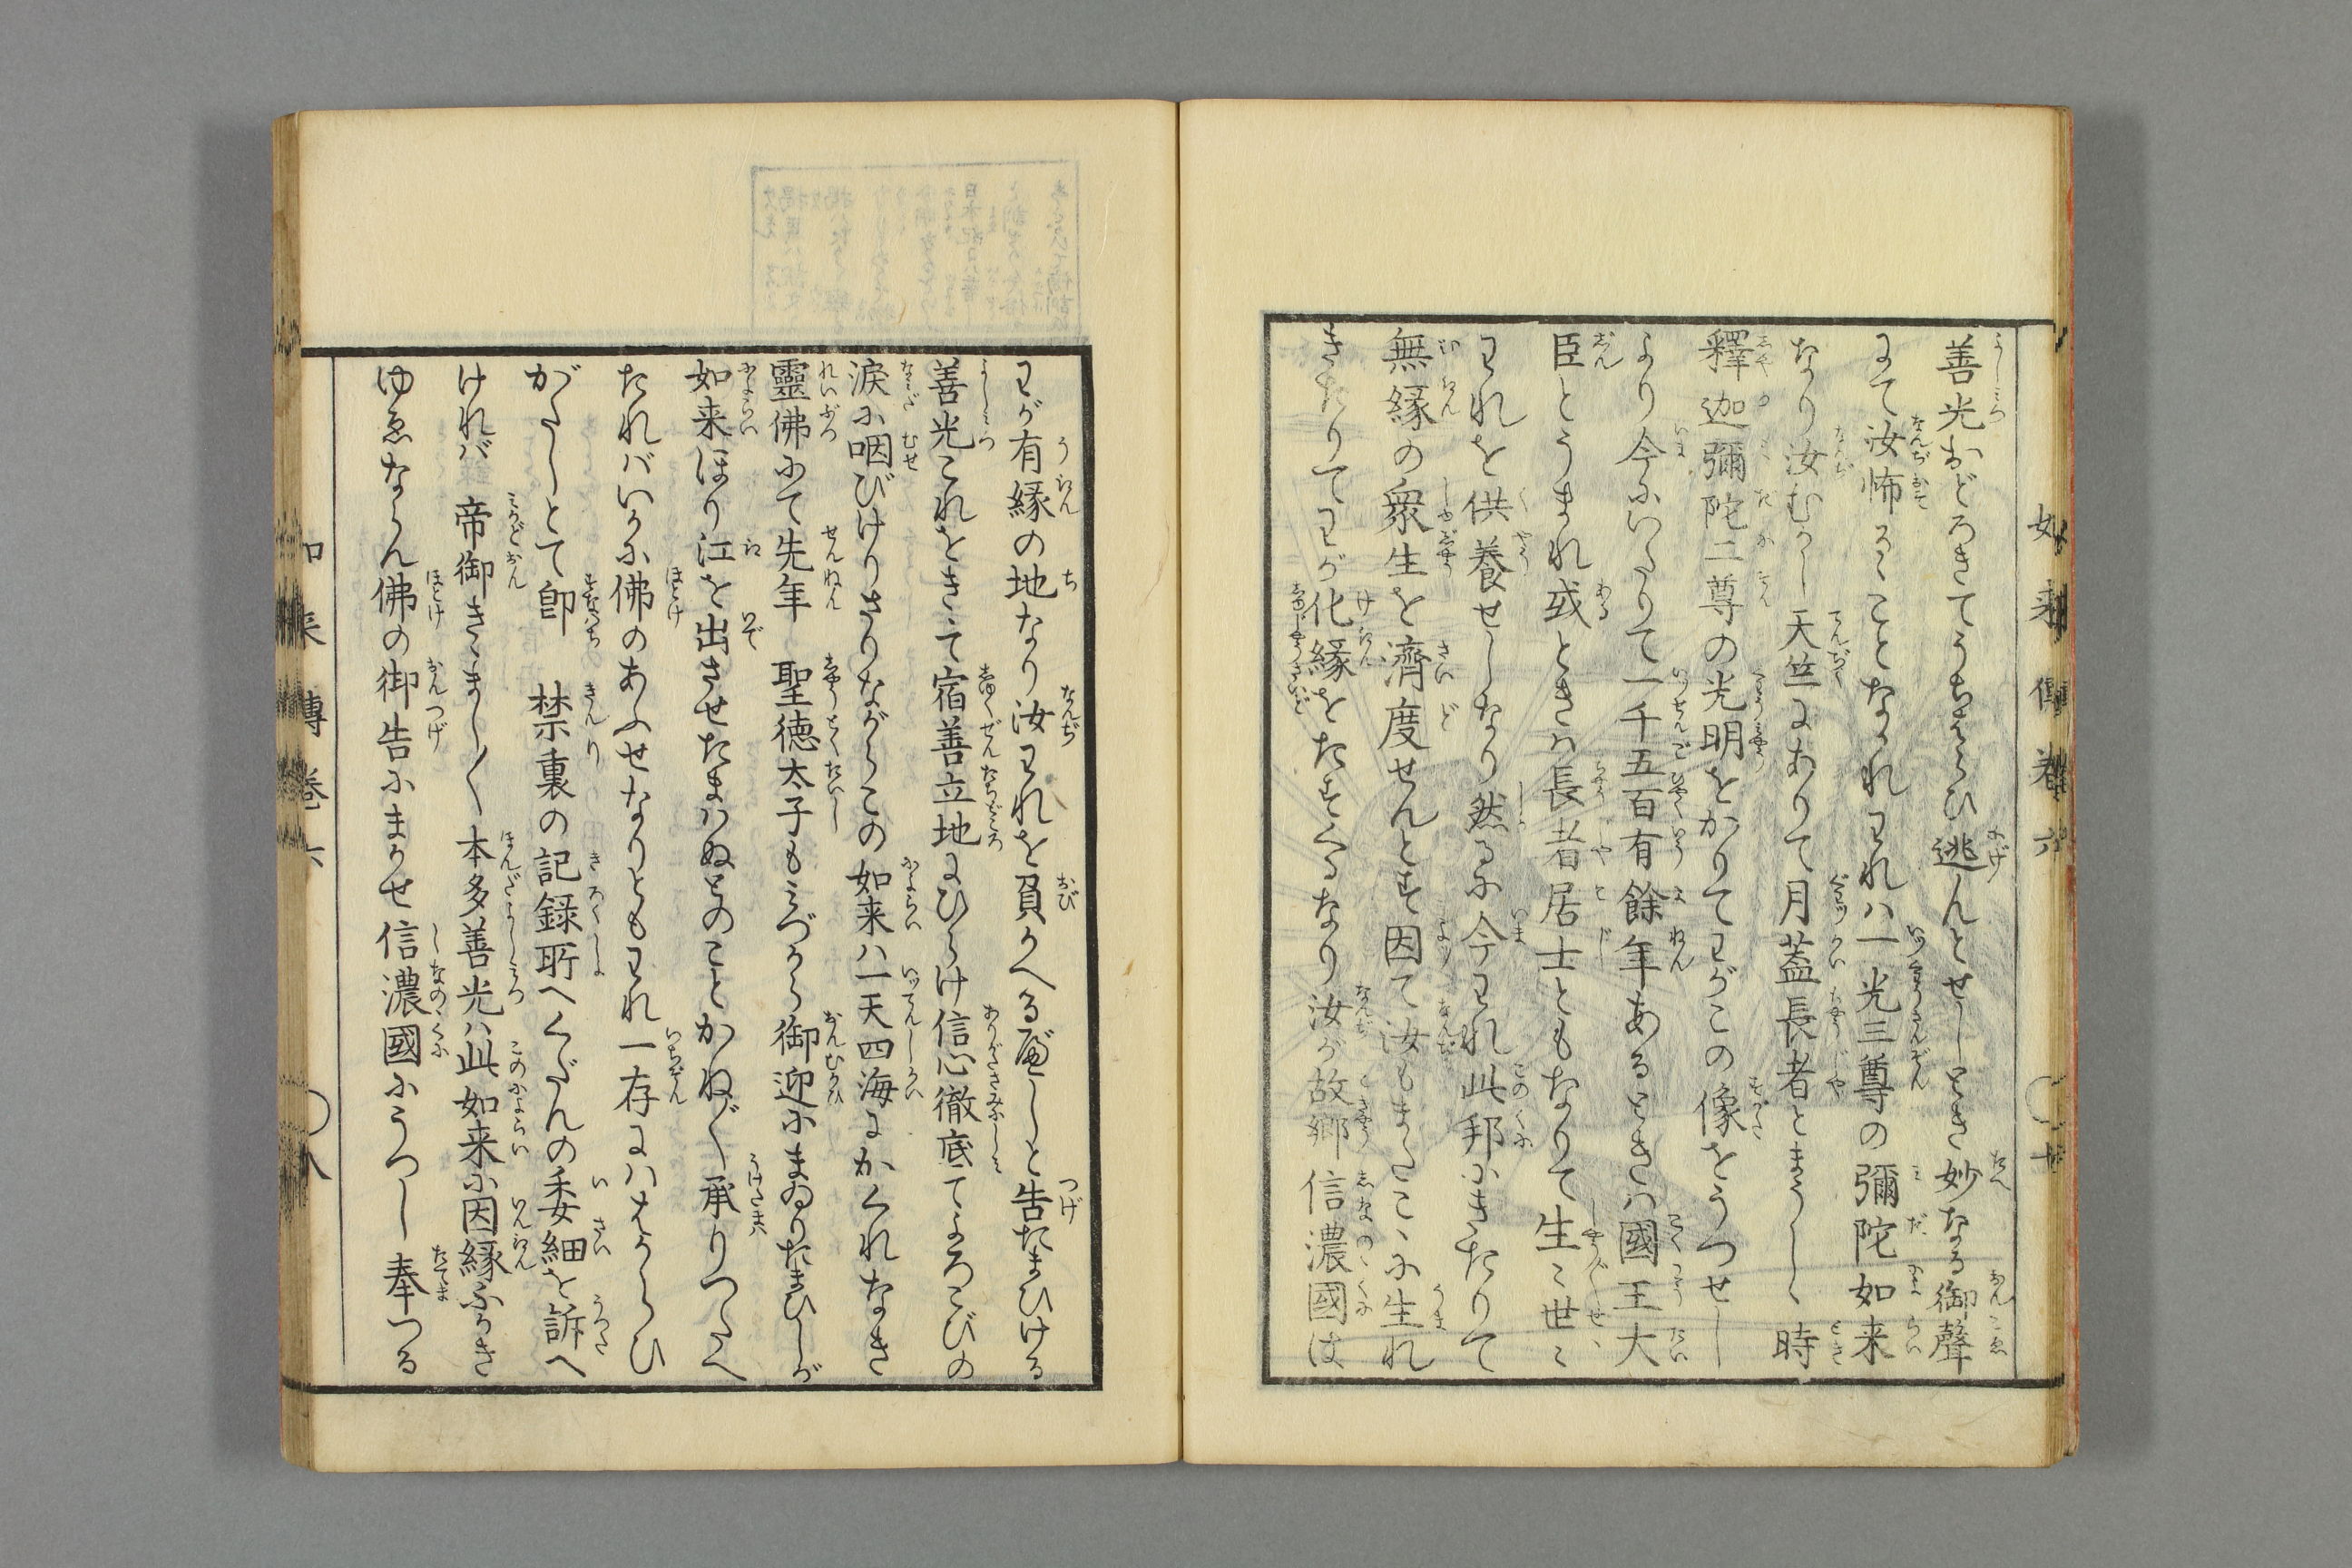 善光おどろきてうちはらひ逃んとせしとき妙なる御聲
にて汝怖るゝことなかれわれハ一光三尊の彌陀如来
なり汝むかし天竺にありて月蓋長者とまうしゝ時
釋迦彌陀二尊の光明をかりてわがこの像をうつせし
より今にいたりて一千五百有餘年あるときハ國王大
臣とうまれ或ときハ長者居士ともなりて生〻世〻
われを供養せしなり然るに今われ此邦にきたりて
無縁の衆生を濟度せんとす因て汝もまたこゝに生れ
きたりてわが化縁をたすくるなり汝が故郷信濃國は
わが有縁の地なり汝われを負かへるべしと告たまひける
善光これをきゝて宿善立地にひらけ信心徹底てよろこびの
涙に咽びけりさりながらこの如来ハ一天四海にかくれなき
靈佛にて先年 聖徳太子もみづから御迎にまゐりたまひしが
如来ほり江を出させたまハぬとのことかねがね承りつたへ
たれバいかに佛のあふせなりともわれ一存にハはからひ
がたしとて卽 禁裏の記録所へくだんの委細を訴へ
けれバ 帝御きゝまし〳〵本多善光ハ此如来に因縁ふかき
ゆゑならん佛の御告にまかせ信濃國にうつし奉つる
如来傳巻六